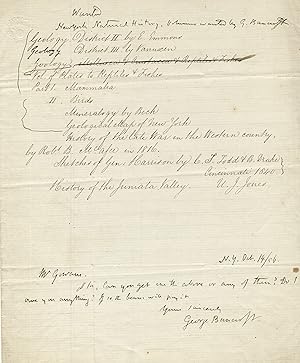 Wanted
New York Natural History, Volumes wanted by G. Bancroft
Geology District II by E. Emmons
Geology District III by Vanuxem
Zoology,
Vol. of Plates to Reptiles & Fishes
Part I. Mammalia
II. Birds
Mineralogy by Beck
Geological Map of New York
History of the Late War in the Western country,
by Robt B. McAfee in 1816.
Sketches of Gen. Harrison by C. S. Todd & B. Drake
Cincinnati 1840.
History of the Juniata Valley. U. J. Jones.
N.Y. Oct. 14/56.
Mr Gowans.
Sir, Can you get me the above or any of them? Do I
owe you anything? If so the bearer will pay it.
Yours sincerely
George Bancroft